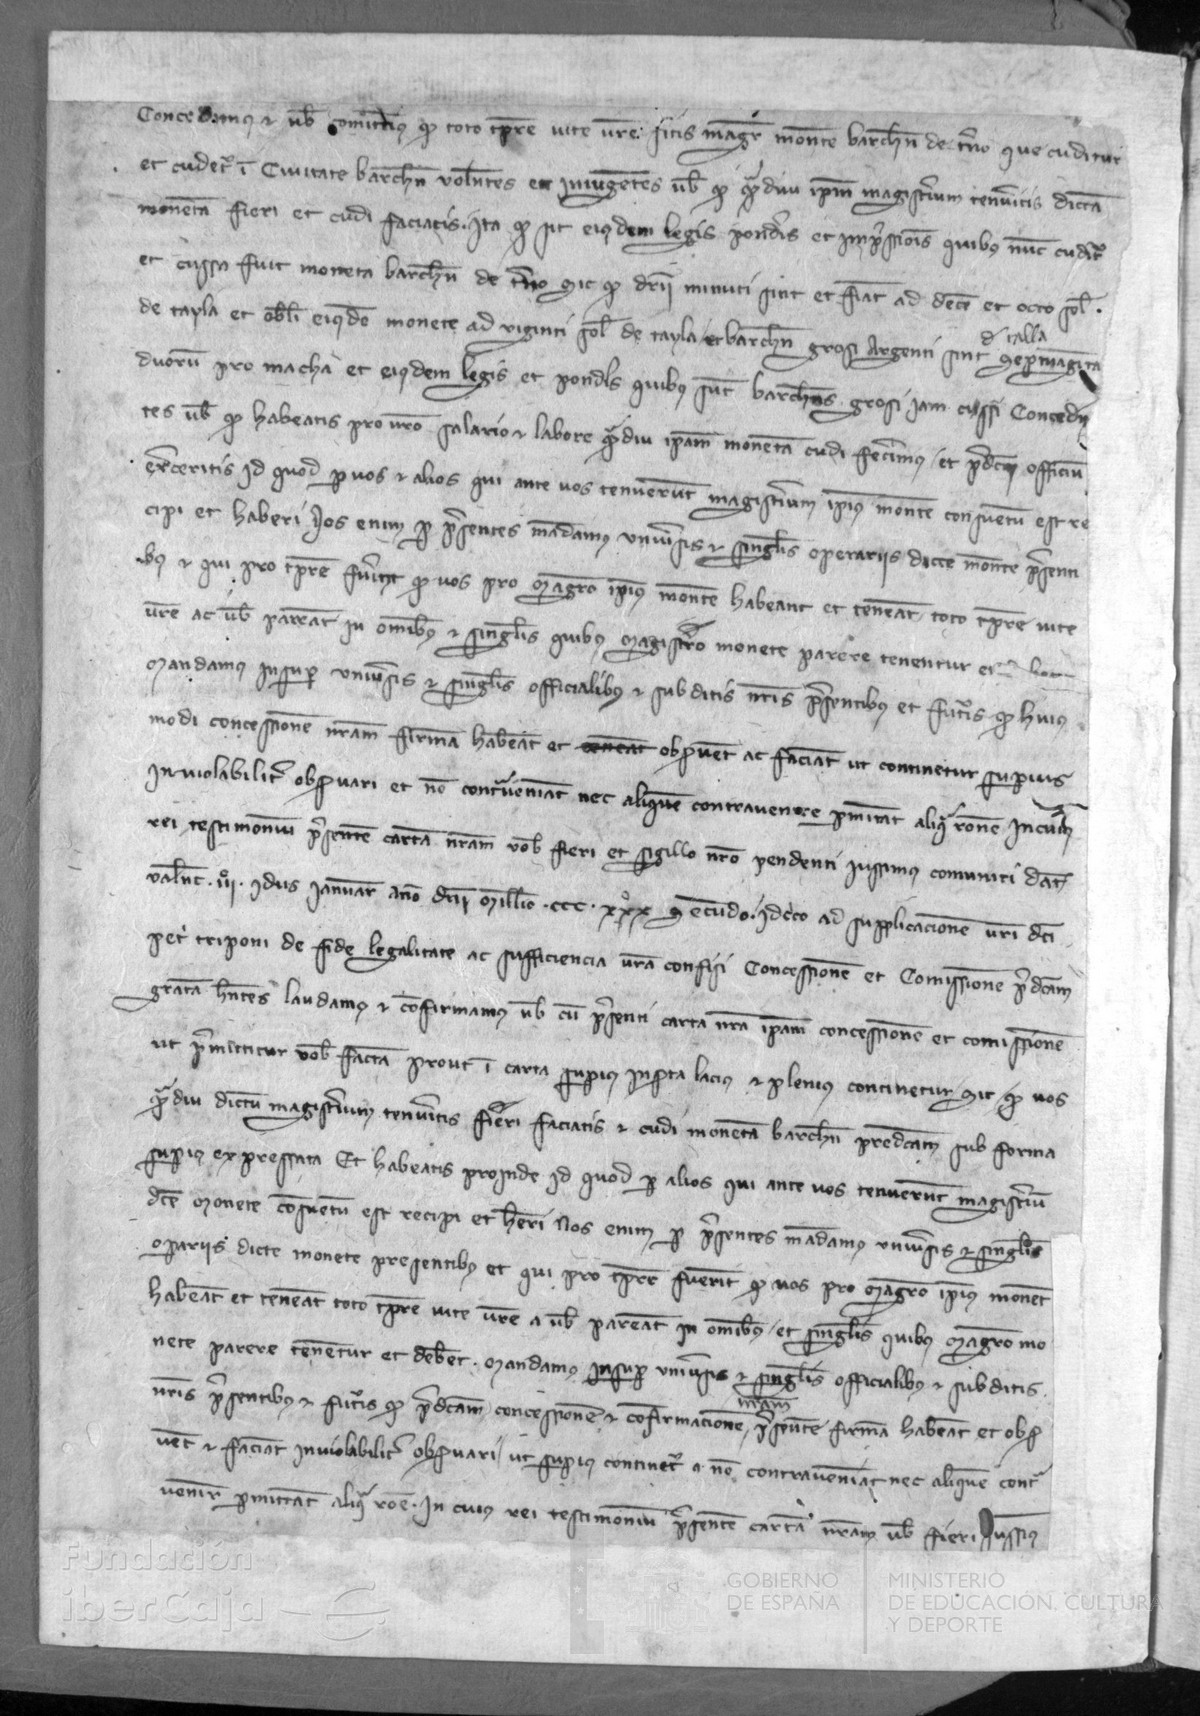 Concedimus et vob comittimus qd toto tpre vite vre sitis magr monete barchn de terno que cuditur
et cudet' i Civitate barchn volentes et iniugentes vob qd qmdiu ipm magisterium tenueritis dictam
moneta fieri et cudi faciatis. Ita qd sit eiusdem legis ponderis et impssiois quibus nuc cudit'
et cussa fuit moneta barchn de terno sic qd drii minuti sint et fiat ad dece et octo sol.
de tayla et oboli eiusde monete ad viginti sol de tayla et barchn grosi Argenti sint
de talla
duoru pro marcha et eiusdem legis et ponderis quibus sut barchns grosi iam cussi Conceden
tes vob qd habeatis pro vro salario et labore qmdiu ipam moneta cudi fecimus et pdcm officiu
exerceritis id quod p vos et alios qui ante vos tenuerut magisterium ipius monete consuetu est re
cipi et haberi Nos enim p psentes madamus univsis et singlis operariis dicte monete psenti
bus et qui pro tpre fuerint qd vos pro magro ipius monete habeant et teneat toto tpre vite
vre ac vob pareat in omibus et singlis quibus magistro monete parere tenentur et
Mandamus insup univsis et singlis officialibus et subditis nris psentibus et futuris qd huius
modi concessione nram firma habeat et teneat obsvet ac faciat ut continetur supius
inviolabilit' obsvari et no contveniat nec alique contravenire pmitat aliqua rone In cuius
rei testimoniu psente carta nram vob fieri et sigillo nro pendenti iussimus comuniri dat
Valenc. IIIJ. Idus Januar Ano dni Millio. CCC. XXX secundo. Idcco ad supplicacione vri dci
pet triponi de fide legalitate ac sufficiencia vra confisi Concessione et Comissione pdcam
grata hntes laudamus et cofirmamus vob cu psenti carta nra ipam concessione et comissione
ut pmittitur vob facta prout i carta supius inserta lacius et plenius continetur sic qd vos
qmdiu dictu magisterium tenueritis fieri faciatis et cudi moneta barchn predcam sub forma
supius expressata Et habeatis proinde id quod p alios qui ante vos tenuerut magisteriu
dce Monete cosuetu est recipi et heri Nos enim p psentes madamus univsis et singlis
opariis dicte monete presentibus et qui pro tpre fuerit qd vos pro magro ipius monete
habeat et teneat toto tpre vite vre a vob pareat in omibus et singlis quibus magro mo
nete parere tenetur et debet. Mandamus insup univsis et singlis officialibus et subditis
nris psentibus et futuris qd pdcam concessione et cofirmacione
nram
psente firma habeat et obs
vet et faciat inviolabilit' obsvari ut supius continet' a no contraveniat nec alique cont
venir pmittat aliqua roe. In cuius rei testimoniu psente carta nram vob fieri Jussimus
Fundación
iberCaja
GOBIERNO
DE ESPAÑA
MINISTERIO
DE EDUCACIÓN, CULTURA
Y DEPORTE